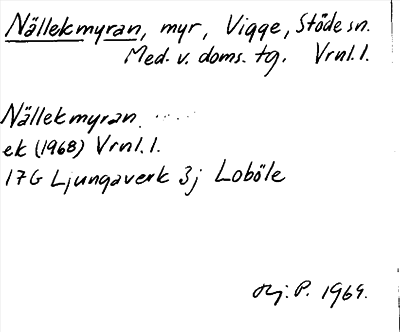 Nällekmyran, myr, Vigge, Stöde sn.
Med. v. doms. tg. Vrnl. l.
Nällekmyran .....
ek (1968) Vrnl. l.
17G Ljungaverk 3j Loböle
Hj. P. 1969.